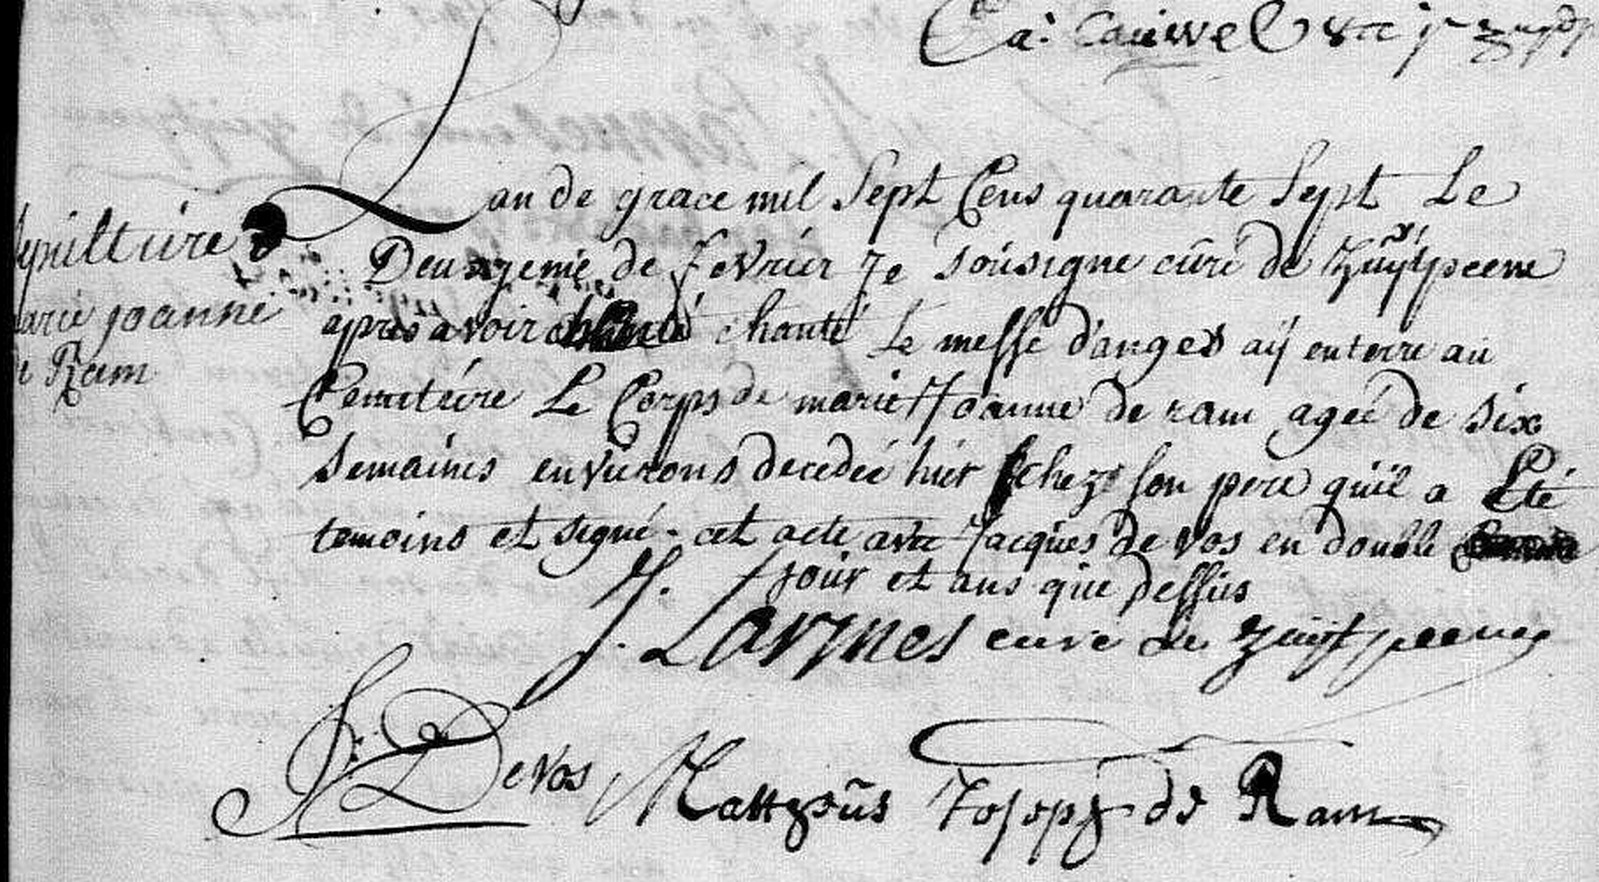 Ca: Cauwel
Lan de grace mil Sept Cens quarante Sept Le
Sepulture
Deuxjeme de fevrier Je sousigne curé de Zuÿtpeene
marie joanne
apres avoir chanté Le messe d'anges aÿ enterre au
de Ram
Cemetéire Le Corps de marie Joanne de ram ageé de six
Semaines environs decedeé hier chez son pere quil a Eté
temoins et signé cet acte avec Jacques de vos en double
jour et ans que dessus
J. Larmes curé de Zuytpeene
J: Devos Mattheus Joseph de Ram